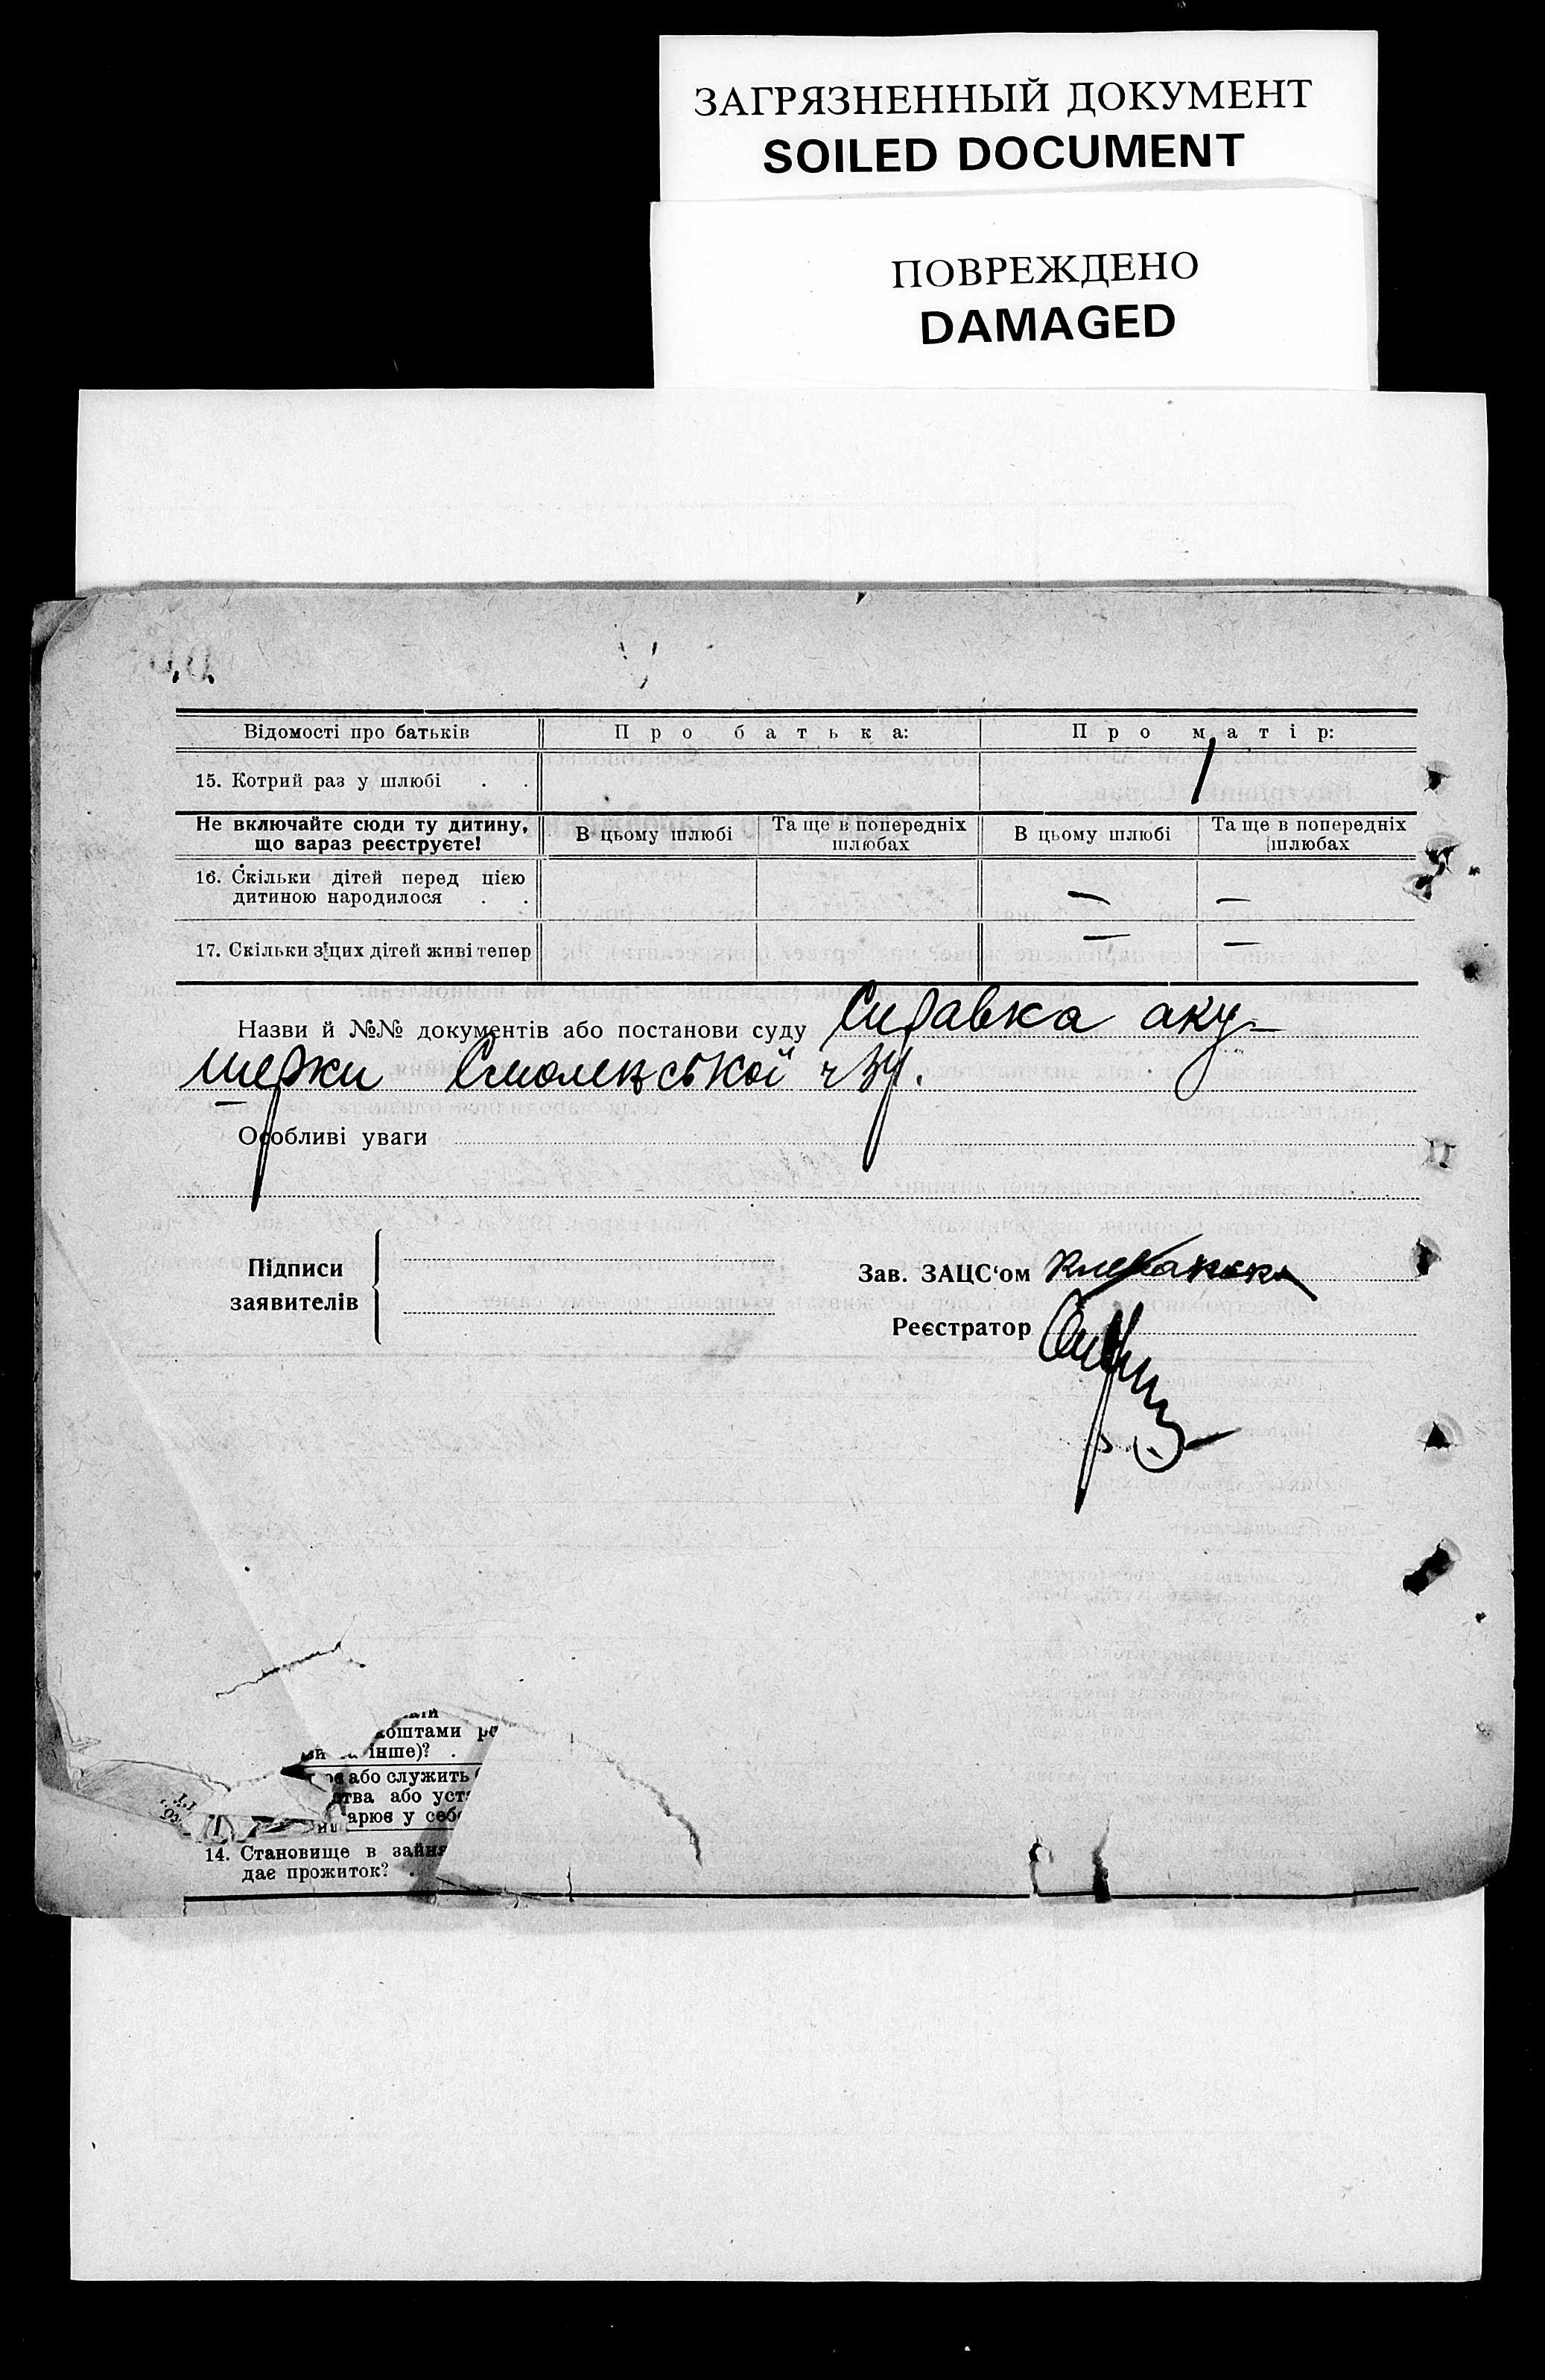 ЗАГРЯЗНЕННЫЙ ДОКУМЕНТ
SOILED DOCUMENT
ПОВРЕЖДЕНО
DAMAGED
Відомості про батьків Про батька: Про матір:
15. Котрий раз у шлюбі . . 1
Не включайте сюди ту дитину, що зараз реєструєте! В цьому шлюбі Та ще в попередніх шлюбах В цьому шлюбі Та ще в попередніх шлюбах
16. Скільки дітей перед цією дитиною народилося . . — —
17. Скільки з цих дітей живі тепер — —
Назви й №№ документів або постанови суду Справка аку-
шерки Смоленської
Особливі уваги
Підписи
заявителів
Зав. ЗАЦС‘ом
Реєстратор
коштами
інше)? .
або служить
або
у
14. Становище в
дає прожиток? .